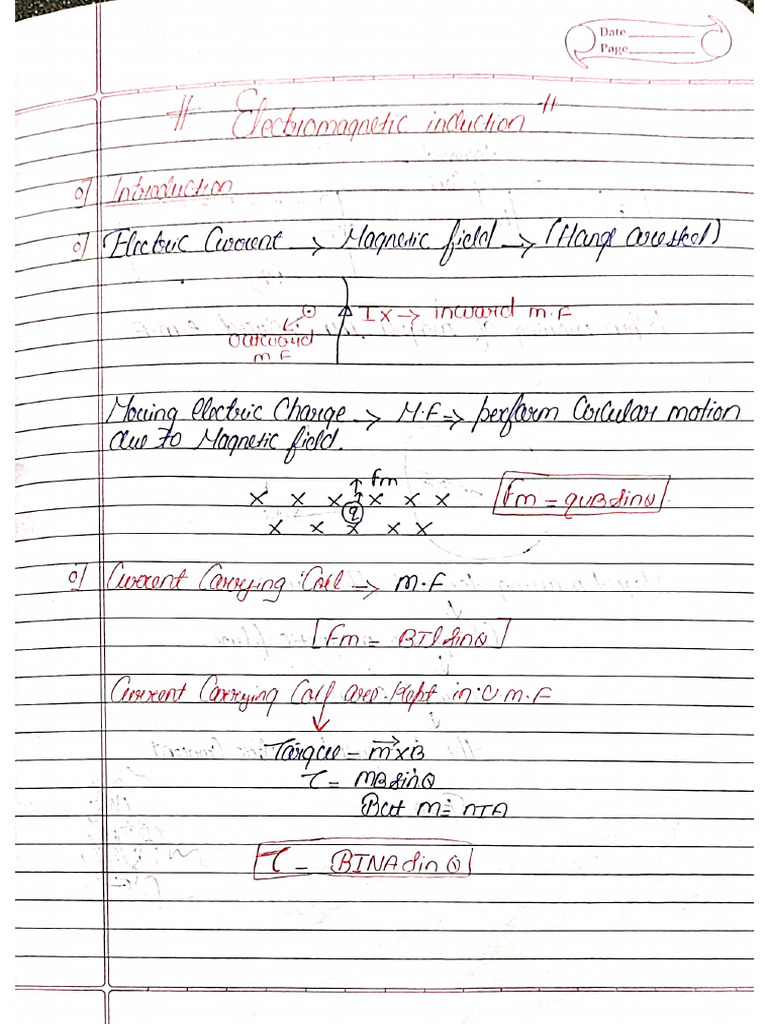 Date
Page
# Electromagnetic induction #
o] Introduction
o] Electric Current → Magnetic field → (Hans Oersted)
I X → inward m.F
outward
m F
Moving electric Charge → M.F → perform Circular motion
due to Magnetic field.
Fm
X X X X X X
q
X X X X X
Fm = qvBsinθ
o] Current Carrying Coil → M.F
Fm = BIlsinθ
Current Carrying Coil are Kept in U.M.F
↓
Tarque = m×B
τ = MBsinθ
But M = nIA
τ = BINAsinθ